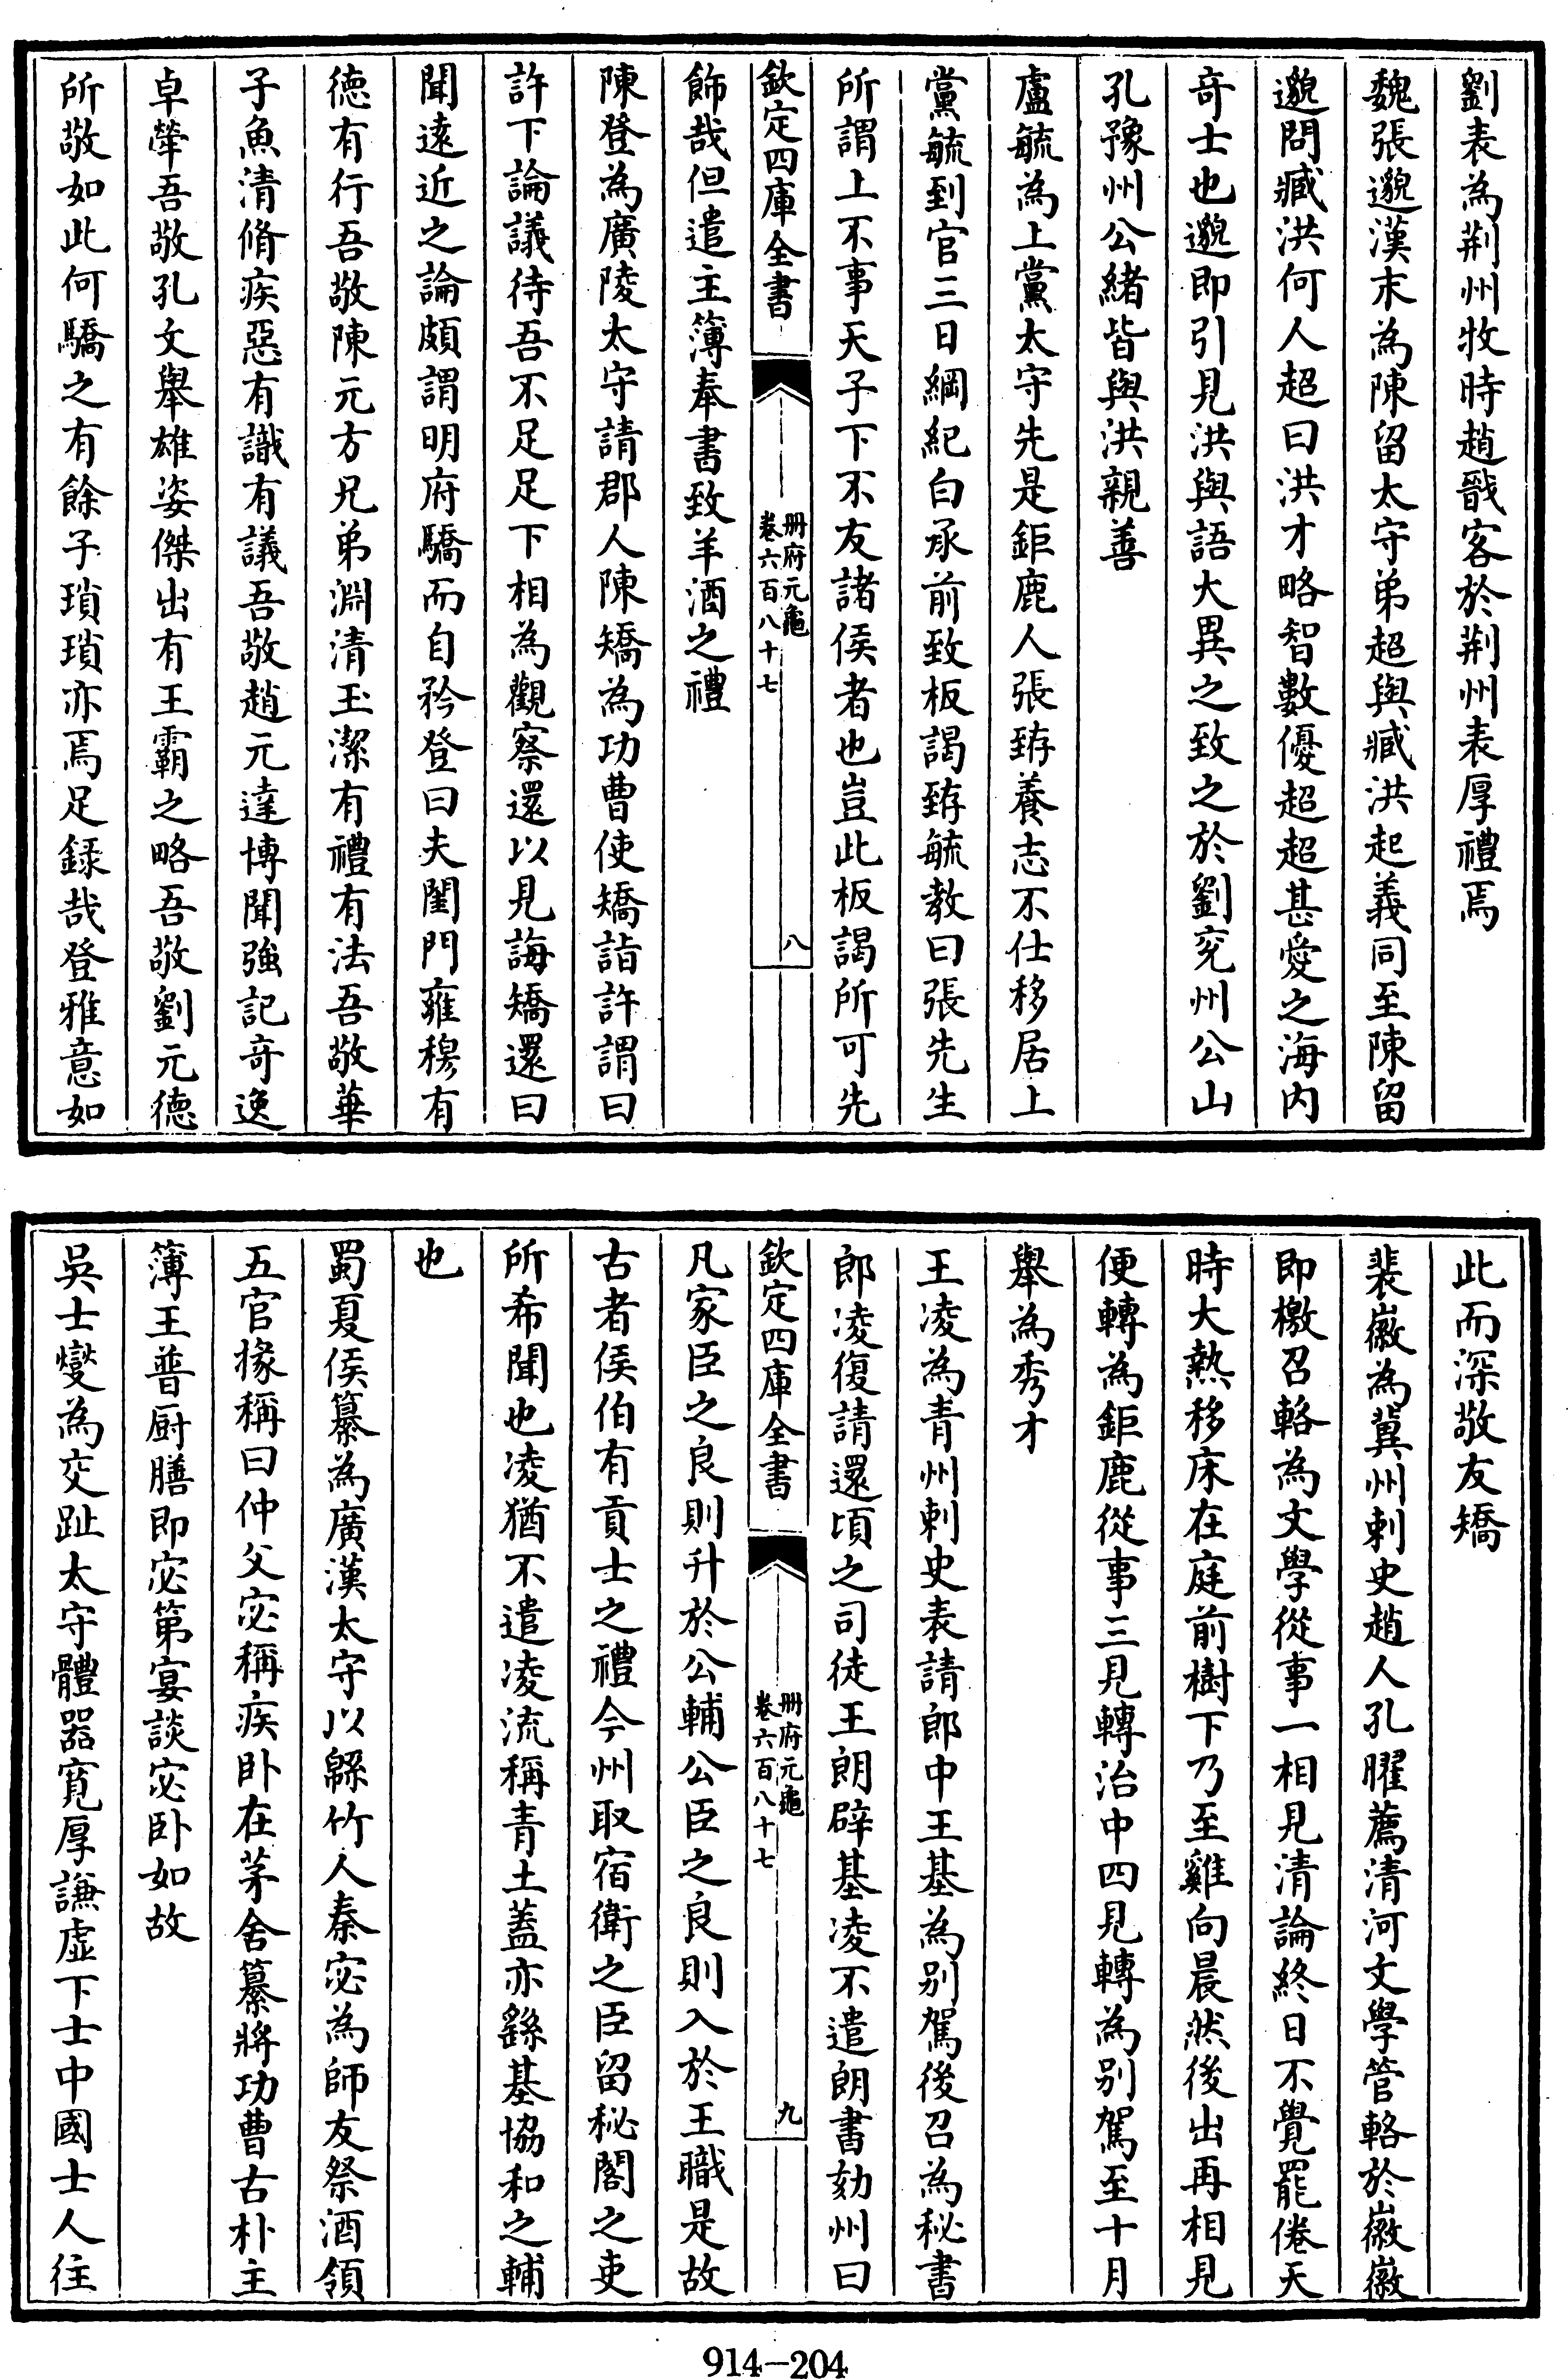 劉表為荆州牧時趙戩客於荆州表厚禮焉
魏張邈漢末為陳留太守弟超與臧洪起義同至陳留
邈問臧洪何人超曰洪才略智數優超超甚愛之海内
竒士也邈即引見洪與語大異之致之於劉兖州公山
孔豫州公緒皆與洪親善
盧毓為上黨太守先是鉅鹿人張臶養志不仕移居上
黨毓到官三日綱紀白承前致板謁臶毓教曰張先生
所謂上不事天子下不友諸侯者也豈此板謁所可先
欽定四庫全書
册府元龜
卷六百八十七
八
飾哉但遣主簿奉書致羊酒之禮
陳登為廣陵太守請郡人陳矯為功曹使矯詣許謂曰
許下論議待吾不足足下相為觀察還以見誨矯還曰
聞逺近之論頗謂明府驕而自矜登曰夫閨門雍穆有
徳有行吾敬陳元方兄弟淵清玉潔有禮有法吾敬華
子魚清脩疾惡有識有議吾敬趙元達博聞強記竒逸
卓犖吾敬孔文舉雄姿傑出有王霸之略吾敬劉元徳
所敬如此何驕之有餘子瑣瑣亦焉足録哉登雅意如
此而深敬友矯
裴徽為冀州刺史趙人孔曜薦清河文學管輅於徽徽
即檄召輅為文學從事一相見清論終日不覺罷倦天
時大熱移床在庭前樹下乃至雞向晨然後出再相見
便轉為鉅鹿從事三見轉治中四見轉為别駕至十月
舉為秀才
王凌為青州刺史表請郎中王基為别駕後召為秘書
郎凌復請還頃之司徒王朗辟基凌不遣朗書劾州曰
欽定四庫全書
册府元龜
卷六百八十七
九
凡家臣之良則升於公輔公臣之良則入於王職是故
古者侯伯有貢士之禮今州取宿衛之臣留秘閣之吏
所希聞也凌猶不遣凌流稱青土蓋亦繇基協和之輔
也
蜀夏侯纂為廣漢太守以緜竹人秦宓為師友祭酒領
五官掾稱曰仲父宓稱疾卧在茅舍纂將功曹古朴主
簿王普厨膳即宓第宴談宓卧如故
吳士燮為交趾太守體器寛厚謙虚下士中國士人往
914-204